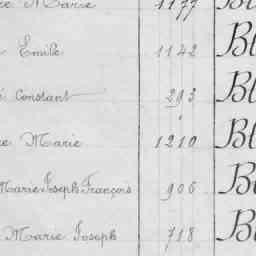 re Marie 1177 Bl
Emile 1142 Bl
é Constant 293 Bl
re Marie 1210 Bl
Marie Joseph François 906 Bl
Marie Joseph 718 Bl